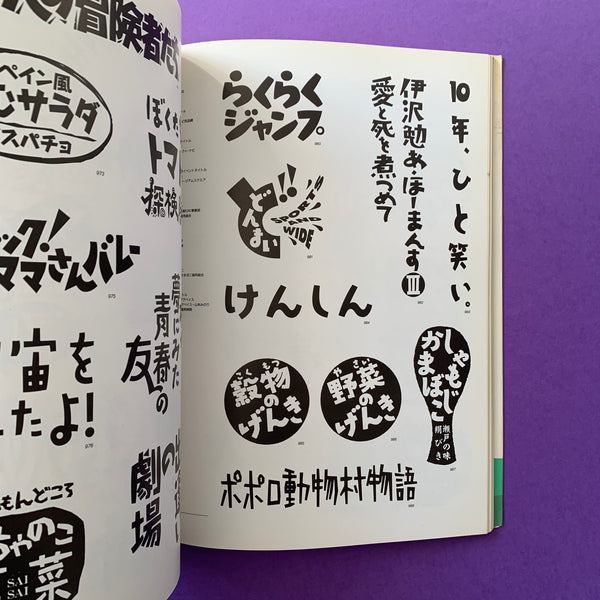 冒険者た
ペイン風
サラダ
スパチョ
973
ぼくた
トマ
探検
ック!
ママさんバレー
975
宙を
たよ!
976
夢にみた
青春の
友
劇場
もんどころ
ちゃのこ
菜
SAI
SAI
らくらく
ジャンプ。
980
どんまい
SPORTS
AND
WIDE
981
伊沢勉あ・ほーまんす
III
愛と死を煮つめて
982
10年、ひと笑い。
983
けんしん
984
こくもつ
穀物の
げんき
985
やさい
野菜の
げんき
986
しゃもじ
かまぼこ
瀬戸の味
絹びき
987
ポポロ動物村物語
988